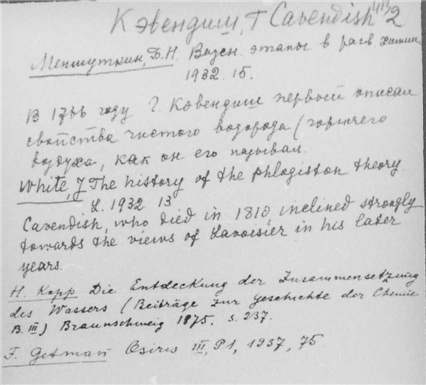 Кэвендиш, Г Cavendish 2
Меншуткин, Б.Н. Важн. этапы в разв химии
1932 15.
В 1766 году Г. Кэвендиш первый описал
свойства чистого водорода (горючего
воздуха, как он его называл.
White, J The history of the phlogiston theory
L. 1932 13
Cavendish, who died in 1810 inclined strongly
towards the views of Lavoisier in his later
years.
H. Kopp Die Entdeckung der Zusammensetzung
des Wassers (Beiträge zur Geschichte der Chemie
B. III) Braunschweig 1875. S. 237.
F. Getman Osiris III, P1, 1937, 75